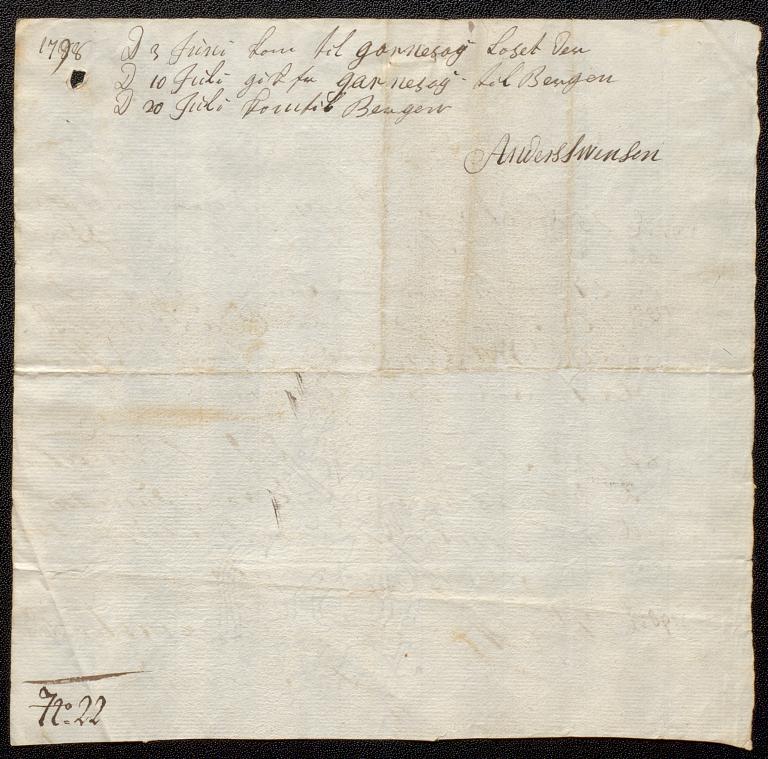 1798 D 3 Juni kom til garnesøÿ Loset den
D 10 Juli gik fra garnesøÿ til Bergen
D 20 Juli kom til Bergen
Anders Swensen
No: 22